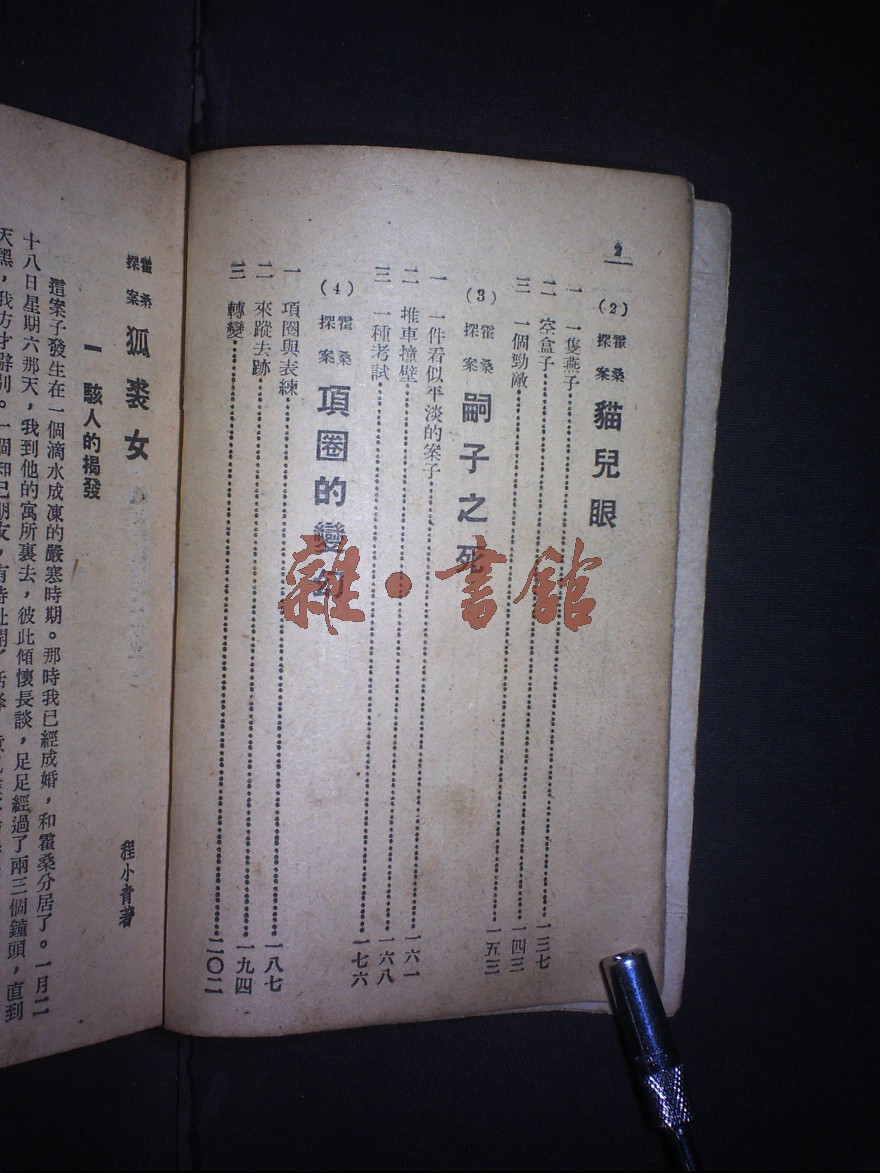 2
(2) 霍桑探案 貓兒眼
一 一隻燕子……一三七
二 空盒子……一四三
三 一個勁敵……一五三
(3) 霍桑探案 嗣子之死
一 一件看似平淡的案子……一六一
二 推車撞壁……一六八
三 一種考試……一七六
(4) 霍桑探案 項圈的變幻
一 項圈與表練……一八七
二 來蹤去跡……一九四
三 轉變……二〇二
霍桑探案 狐裘女 程小青著
一 駭人的揭發
這案子發生在一個滴水成凍的嚴寒時期。那時我已經成婚，和霍桑分居了。一月二
十八日星期六那天，我到他的寓所裏去，彼此傾懷長談，足足經過了兩三個鐘頭，直到
天黑，我方才辭別。一個知己朋友，有時扯開了話
雜·書館